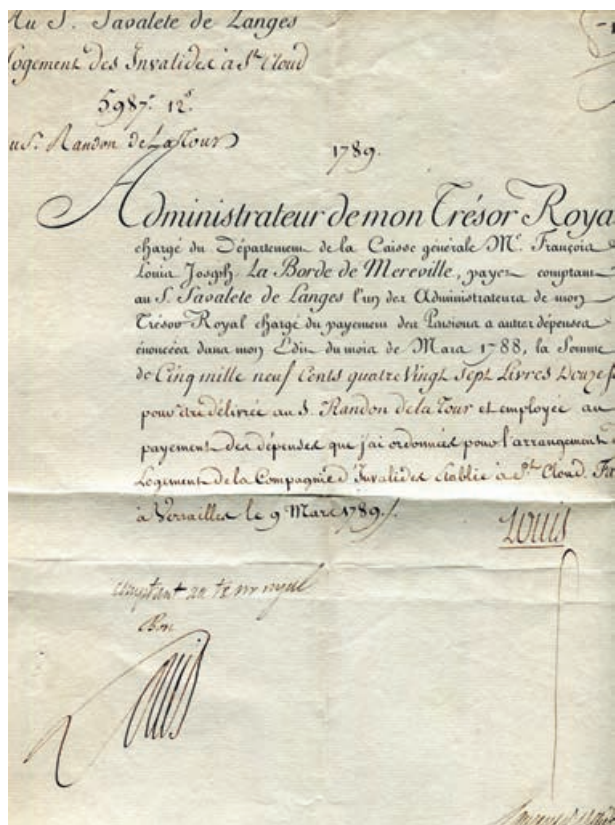 Au S. Savalete de Langes
Logement des Invalides à St. Cloud
5987# 12s
au S. Randon de La Tour
1789.
Administrateur de mon Trésor Royal
chargé du Département de la Caisse générale Mr. François
Louis Joseph La Borde de Mereville, payez comptant
au S. Savalete de Langes l'un des Administrateurs de mon
Trésor Royal chargé du payement des Pensions & autres dépenses
énoncées dans mon Edit du mois de Mars 1788, la Somme
de Cinq mille neuf Cents quatre Vingt Sept Livres Douze
pour être délivrée au S. Randon de la Tour et employée au
payement des dépenses que jai ordonnées pour l'arrangement
Logement de la Compagnie d'Invalides établie à St. Cloud. Fait
à Versailles le 9 Mars 1789.
Louis
comptant au
Bon
Louis